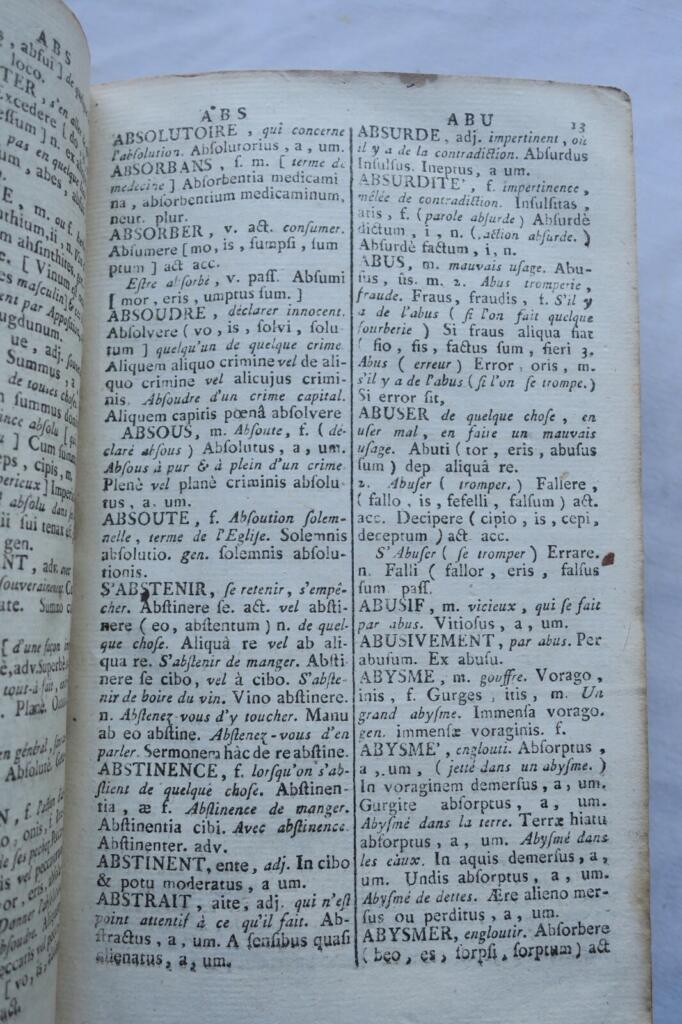 ABS
, absui ] de
loco.
TER, s'en
Excedere [
essum ] n. ex
pas en quelque
um, abes, abs
E, m. ou f.
nthium, ii, n.
c. [ Vinum
es masculin
ent par Apposi
ugdunum.
ue, adj.
Summus, a
de toutes chos
n summus
ince absolu
u ] Cum
eps, cipis, m
perieux ] Imper
absolu dans
ii sui tenax
gen.
NT, adv.
ouverainement
ate.
[ d'une façon
adv. Superbè
tout-à-fait,
. Planè.
en général,
Absolutè.
ABS
ABSOLUTOIRE, qui concerne
l'absolution. Absolutorius, a, um.
ABSORBANS, ſ. m. [ terme de
medecine ] Absorbentia medicami
na, absorbentium medicaminum,
neut. plur.
ABSORBER, v. act. conſumer.
Abſumere [ mo, is, ſumpſi, ſum
ptum ] act acc.
Eſtre abſorbé, v. paſſ. Abſumi
[ mor, eris, umptus ſum. ]
ABSOUDRE, déclarer innocent.
Abſolvere ( vo, is, ſolvi, ſolu
tum ] quelqu'un de quelque crime
Aliquem aliquo crimine vel de ali-
quo crimine vel alicujus crimi-
nis. Abſoudre d'un crime capital.
Aliquem capitis pœnâ abſolvere
ABSOUS, m. Abſoute, f. ( dé-
claré abſous ) Abſolutus, a, um.
Abſous à pur & à plein d'un crime
Plenè vel planè criminis abſolu-
tus, a. um.
ABSOUTE, f. Abſoution ſolem-
nelle, terme de l'Egliſe. Solemnis
abſolutio. gen. ſolemnis abſolu-
tionis.
S'ABSTENIR, ſe retenir, s'empê-
cher. Abſtinere ſe. act. vel abſti-
nere ( eo, abſtentum ) n. de quel-
que choſe. Aliquâ re vel ab ali-
qua re. S'abſtenir de manger. Abſti
nere ſe cibo, vel à cibo. S'abſte-
nir de boire du vin. Vino abſtinere.
n. Abſtenez-vous d'y toucher. Manu
ab eo abſtine. Abſtenez-vous d'en
parler. Sermonem hâc de re abſtine.
ABSTINENCE, f. lorſqu'on s'ab-
ſtient de quelque choſe. Abſtinen-
tia, æ f. Abſtinence de manger.
Abſtinentia cibi. Avec abſtinence
Abſtinenter. adv.
ABSTINENT, ente, adj. In cibo
& potu moderatus, a um.
ABSTRAIT, aite, adj. qui n'eſt
point attentif à ce qu'il fait. Ab-
ſtractus, a, um. A ſenſibus quaſi
alienatus, a, um.
ABU 13
ABSURDE, adj. impertinent, où
il y a de la contradiction. Abſurdus
Inſulſus. Ineptus, a um.
ABSURDITE', f. impertinence,
mêlée de contradiction. Inſulſitas,
atis, f. ( parole abſurde ) Abſurdè
dictum, i, n. ( action abſurde. )
Abſurdè factum, i, n.
ABUS, m. mauvais uſage. Abu-
ſus, ûs. m. 2. Abus tromperie,
fraude. Fraus, fraudis, f. S'il y
a de l'abus ( ſi l'on fait quelque
fourberie ) Si fraus aliqua fiat
( fio, fis, factus ſum, fieri 3.
Abus ( erreur ) Error, oris, m.
s'il y a de l'abus ( ſi l'on ſe trompe. )
Si error ſit,
ABUSER de quelque choſe, en
uſer mal, en faire un mauvais
uſage. Abuti ( tor, eris, abuſus
ſum ) dep aliquâ re.
2. Abuſer ( tromper. ) Fallere,
( fallo, is, fefelli, falſum ) act.
acc. Decipere ( cipio, is, cepi,
deceptum ) act acc.
S'Abuſer ( ſe tromper ) Errare.
n. Falli ( fallor, eris, falſus
ſum paſſ.
ABUSIF, m. vicieux, qui ſe fait
par abus. Vitioſus, a, um.
ABUSIVEMENT, par abus. Per
abuſum. Ex abuſu.
ABYSME, m. gouffre. Vorago,
inis, f. Gurges, itis, m. Un
grand abyſme. Immenſa vorago.
gen. immenſæ voraginis. f.
ABYSME', englouti. Abſorptus,
a, um, ( jetté dans un abyſme. )
In voraginem demerſus, a, um.
Gurgite abſorptus, a, um.
Abyſmé dans la terre. Terræ hiatu
abſorptus, a, um. Abyſmé dans
les eaux. In aquis demerſus, a,
um. Undis abſorptus, a, um.
Abyſmé de dettes. Ære alieno mer-
ſus ou perditus, a, um.
ABYSMER, engloutir. Abſorbere
( beo, es, ſorpſi, ſorptum ) act